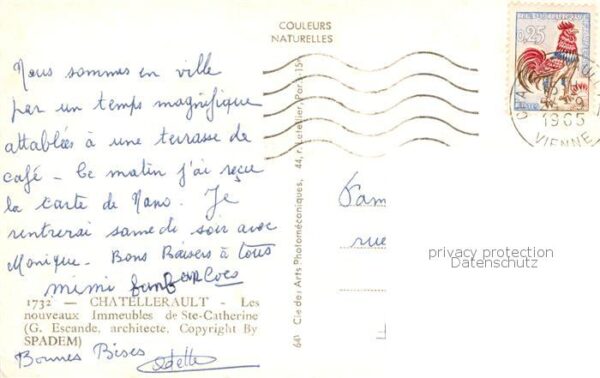 COULEURS
NATURELLES
0,25
1965
VIENNE
Nous sommes en ville
par un temps magnifique
attablées à une terrasse de
café - Ce matin j'ai reçu
la carte de Nano. Je
rentrerai samedi soir avec
Monique - Bons Baisers à tous
mimi
1732 — CHATELLERAULT - Les
nouveaux Immeubles de Ste-Catherine
(G. Escande, architecte, Copyright By
SPADEM)
Bonnes Bises
Odette
641 Cie des Arts Photomécaniques, 44, r. Letellier, Paris-15e
Fam
rue
privacy protection
Datenschutz